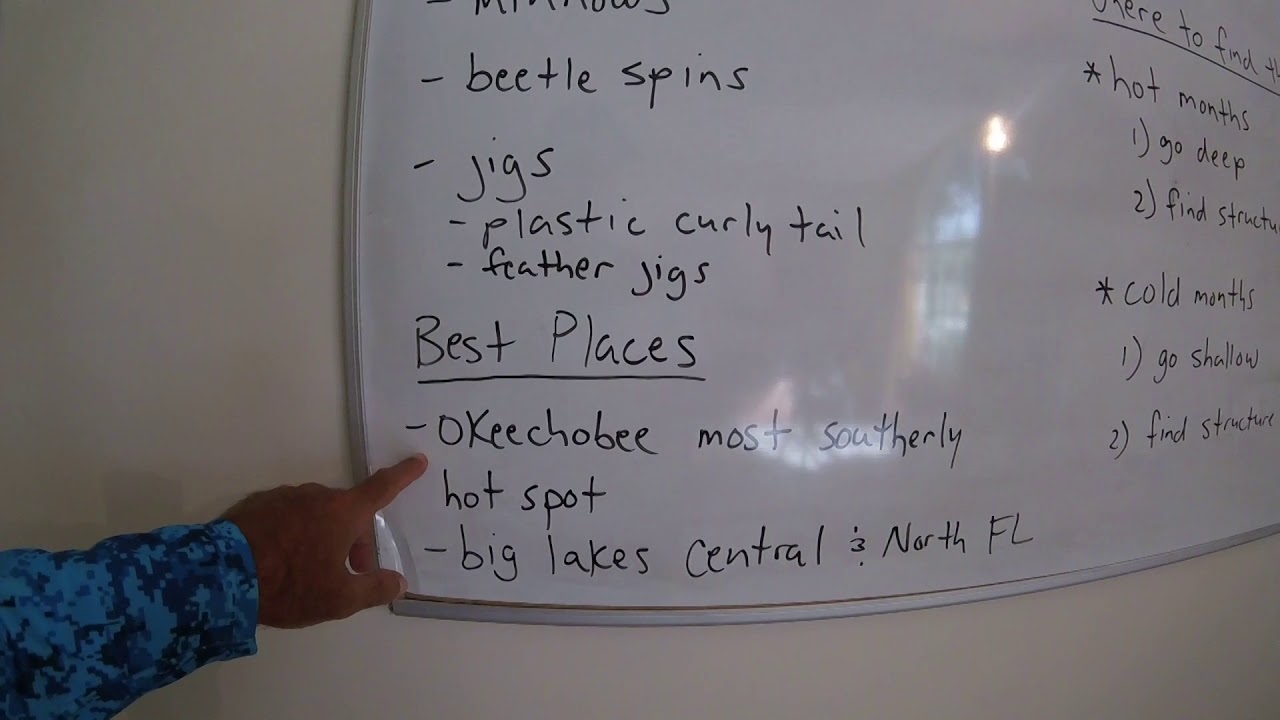 - Minnows
- beetle spins
- jigs
- plastic curly tail
- feather jigs
Best Places
- Okeechobee most southerly
hot spot
- big lakes Central & North FL
where to find
* hot months
1) go deep
2) find structu
* cold months
1) go shallow
2) find structure